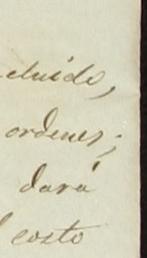 cluido,
ordenes;
dará
l costo